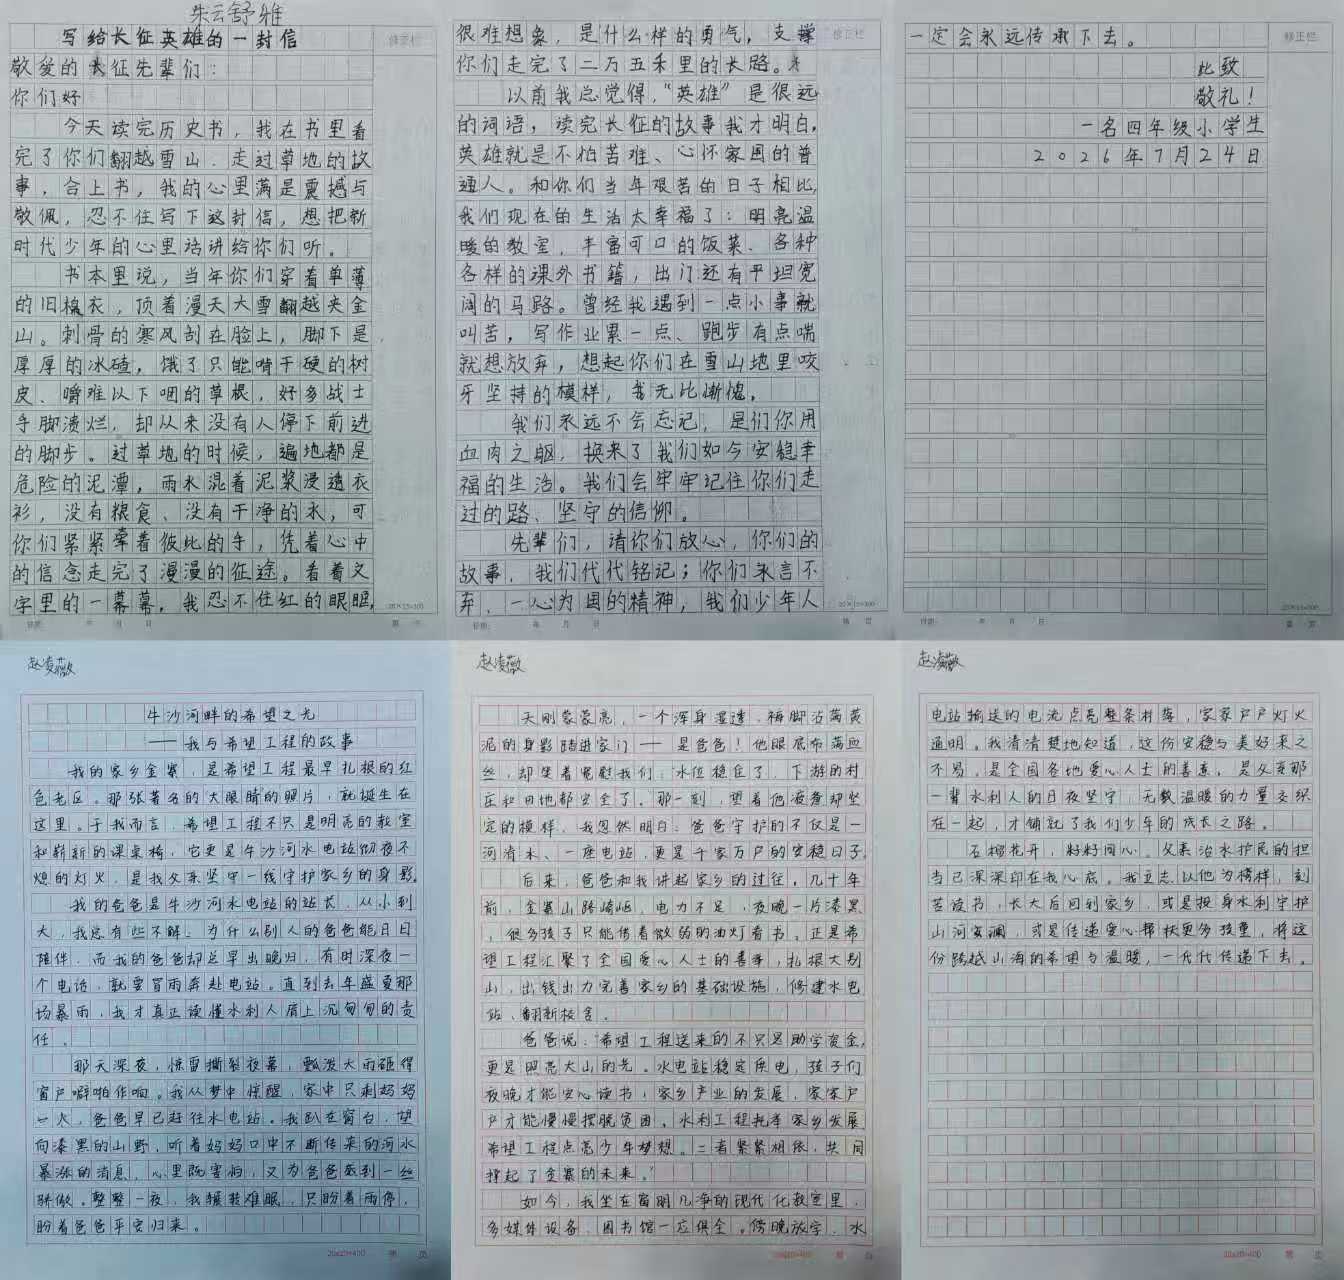 朱云舒雅
写给长征英雄的一封信
敬爱的长征先辈们:
你们好
今天读完历史书,我在书里看
完了你们翻越雪山、走过草地的故
事,合上书,我的心里满是震撼与
敬佩,忍不住写下这封信,想把新
时代少年的心里话讲给你们听。
书本里说,当年你们穿着单薄
的旧棉衣,顶着漫天大雪翻越夹金
山。刺骨的寒风刮在脸上,脚下是
厚厚的冰碴,饿了只能啃干硬的树
皮、嚼难以下咽的草根,好多战士
手脚溃烂,却从来没有人停下前进
的脚步。过草地的时候,遍地都是
危险的泥潭,雨水混着泥浆浸透衣
衫,没有粮食、没有干净的水,可
你们紧紧牵着彼此的手,凭着心中
的信念走完了漫漫的征途。看着文
字里的一幕幕,我忍不住红的眼眶,
修正栏
20×15=300
日期: 年 月 日 第 页
很难想象,是什么样的勇气,支撑
你们走完了二万五千里的长路。
以前我总觉得,“英雄”是很远
的词语,读完长征的故事我才明白,
英雄就是不怕苦难、心怀家国的普
通人。和你们当年艰苦的日子相比,
我们现在的生活太幸福了:明亮温
暖的教室,丰富可口的饭菜、各种
各样的课外书籍,出门还有平坦宽
阔的马路。曾经我遇到一点小事就
叫苦,写作业累一点、跑步有点喘
就想放弃,想起你们在雪山地里咬
牙坚持的模样,我无比惭愧。
我们永远不会忘记,是们你用
血肉之躯,换来了我们如今安稳幸
福的生活。我们会牢牢记住你们走
过的路、坚守的信仰。
先辈们,请你们放心,你们的
故事,我们代代铭记;你们永言不
弃、一心为国的精神,我们少年人
修正栏
20×15=300
日期: 年 月 日 第 页
一定会永远传承下去。
此致
敬礼!
一名四年级小学生
2026年7月24日
修正栏
20×15=300
日期: 年 月 日 第 页
赵凌薇
牛沙河畔的希望之光
——我与希望工程的故事
我的家乡金寨,是希望工程最早扎根的红
色老区。那张著名的“大眼睛”的照片,就诞生在
这里。于我而言,希望工程不只是明亮的教室
和崭新的课桌椅,它更是牛沙河水电站彻夜不
熄的灯火,是我父亲坚守一线守护家乡的身影。
我的爸爸是牛沙河水电站的站长,从小到
大,我总有些不解:为什么别人的爸爸能日日
陪伴,而我的爸爸却总早出晚归,有时深夜一
个电话,就要冒雨奔赴电站。直到去年盛夏那
场暴雨,我才真正读懂水利人肩上沉甸甸的责
任。
那天深夜,惊雷撕裂夜幕,瓢泼大雨砸得
窗户噼啪作响。我从梦中惊醒,家中只剩妈妈
一人,爸爸早已赶往水电站。我趴在窗台,望
向漆黑的山野,听着妈妈口中不断传来的河水
暴涨的消息,心里既害怕,又为爸爸感到一丝
骄傲。整整一夜,我辗转难眠,只盼着雨停,
盼着爸爸平安归来。
20x20=400 第 页
赵凌薇
天刚蒙蒙亮,一个浑身湿透、裤脚沾满黄
泥的身影踏进家门——是爸爸!他眼底布满血
丝,却笑着宽慰我们:“水位稳住了,下游的村
庄和田地都安全了。”那一刻,望着他疲惫却坚
定的模样,我忽然明白:爸爸守护的不仅是一
河清水、一座电站,更是千家万户的安稳日子。
后来,爸爸和我讲起家乡的过往。几十年
前,金寨山路崎岖,电力不足,夜晚一片漆黑
,很多孩子只能借着微弱的油灯看书。正是希
望工程汇聚了全国爱心人士的善举,扎根大别
山,出钱出力完善家乡的基础设施,修建水电
站、翻新校舍。
爸爸说:“希望工程送来的不只是助学资金,
更是照亮大山的光。水电站稳定供电,孩子们
夜晚才能安心读书,家乡产业的发展,家家户
户才能慢慢摆脱贫困。水利工程托举家乡发展
希望工程点亮少年梦想。二者紧紧相依,共同
撑起了金寨的未来。”
如今,我坐在窗明几净的现代化教室里,
多媒体设备、图书馆一应俱全。傍晚放学,水
20x20=400 第 页
赵凌薇
电站输送的电流点亮整条村落,家家户户灯火
通明。我清清楚楚地知道,这份安稳与美好来之
不易,是全国各地爱心人士的善意,是父亲那
一辈水利人的日夜坚守,无数温暖的力量交织
在一起,才铺就了我们少年的成长之路。
石榴花开,籽籽同心。父亲治水护民的担
当已深深印在我心底。我立志以他为榜样,刻
苦读书,长大后回到家乡,或是投身水利守护
山河安澜,或是传递爱心帮扶更多孩童,将这
份跨越山海的希望与温暖,一代代传递下去。
20x20=400 第 页